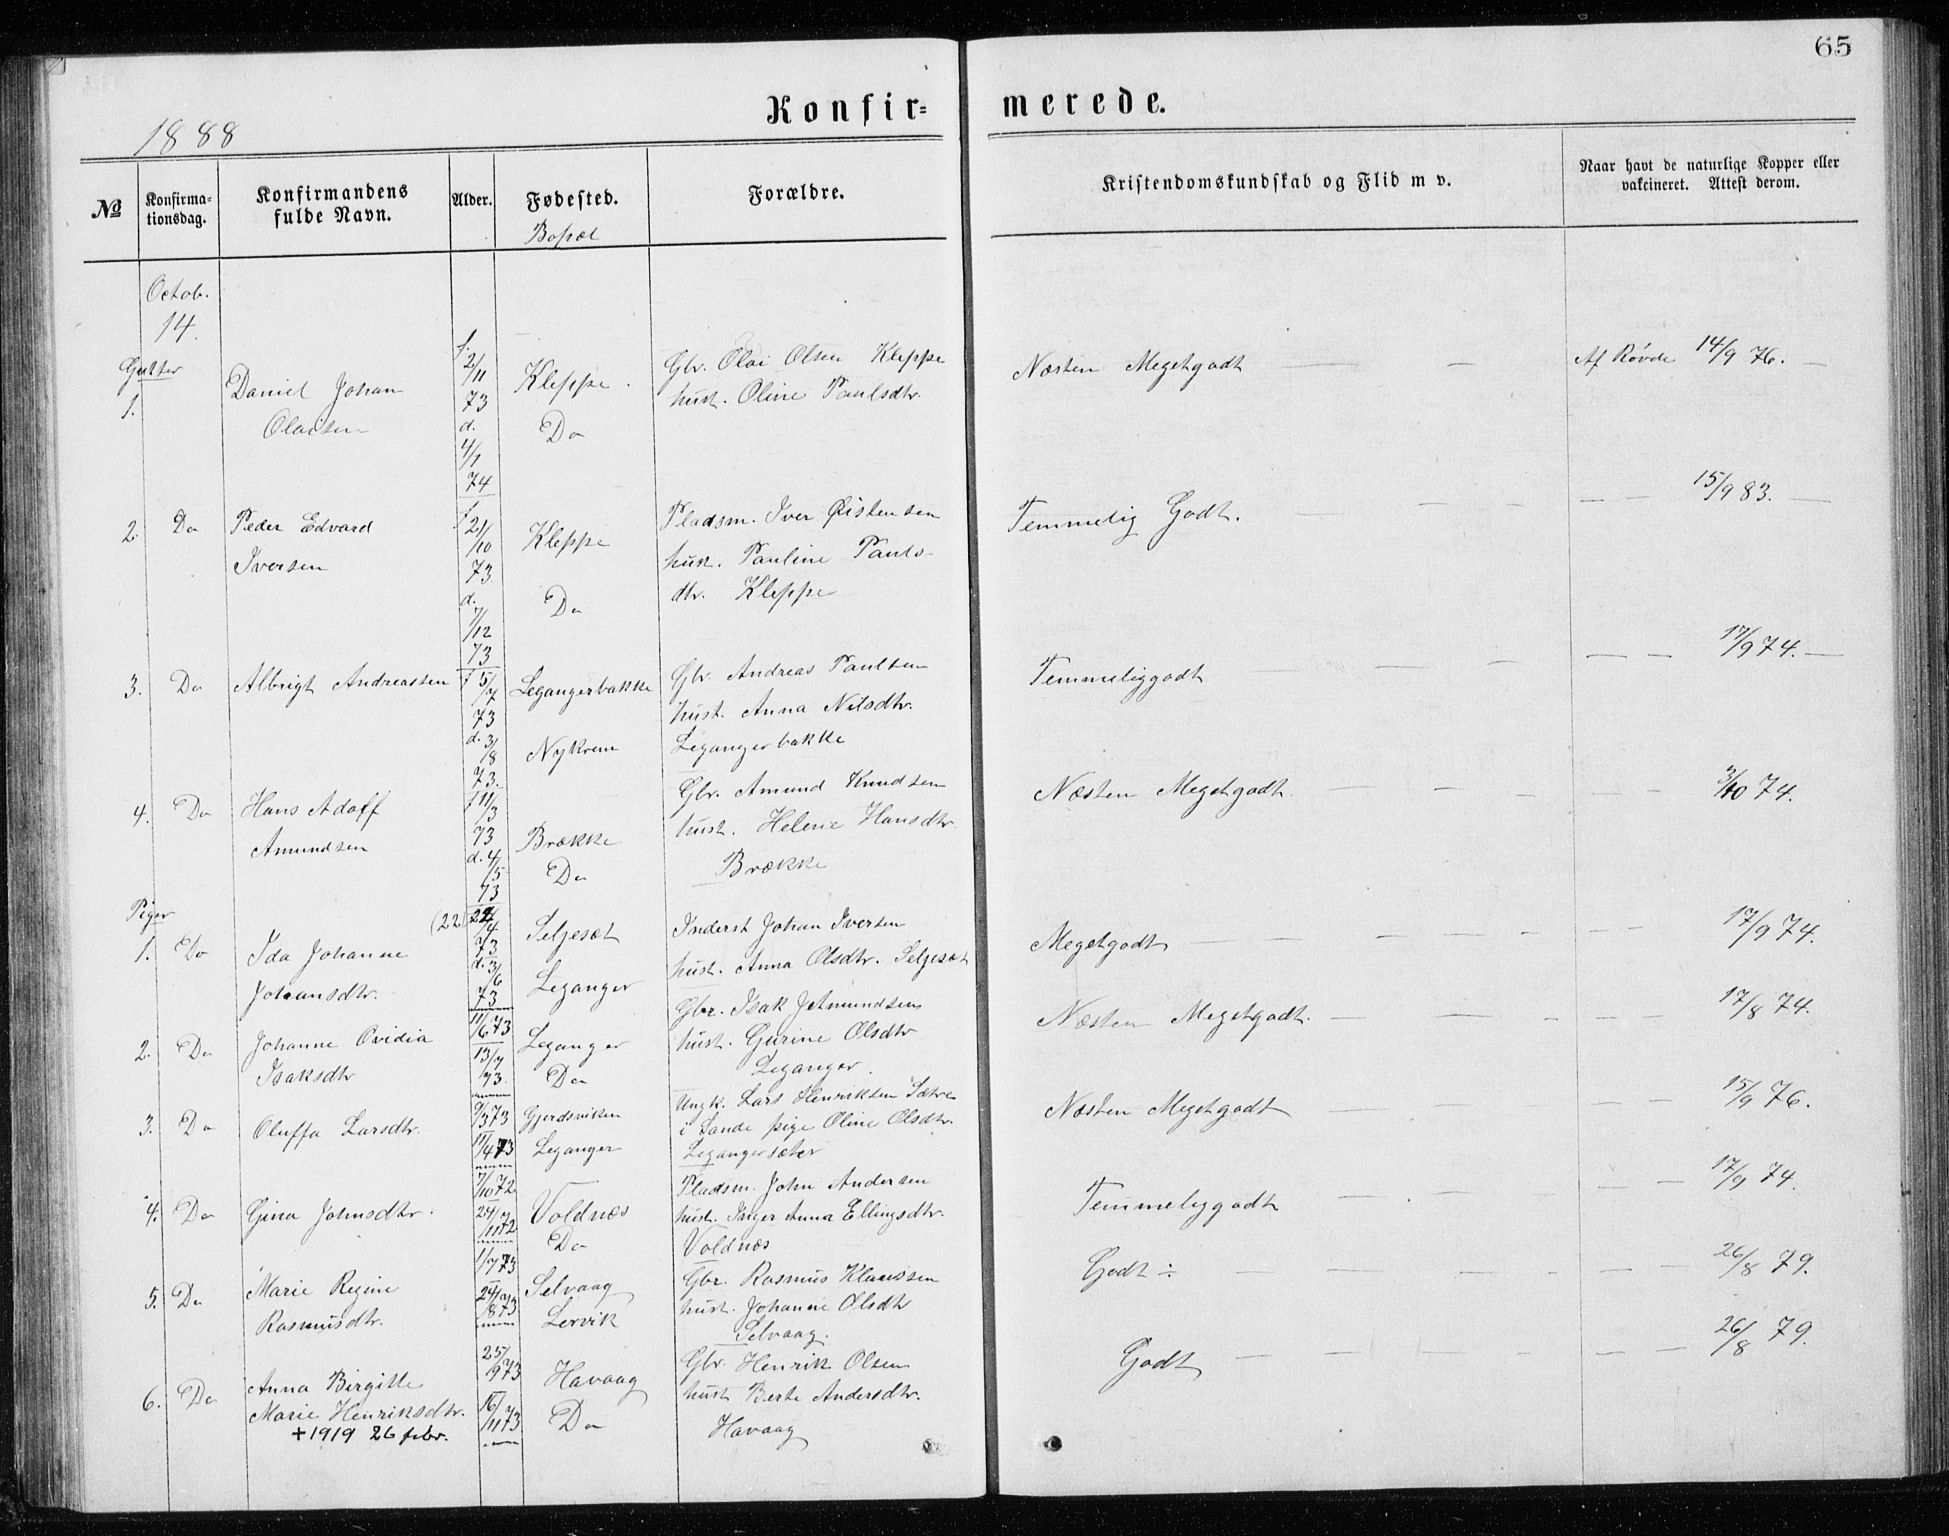 65
Konfir=merede.
1888
№
Konfirma-
tionsdag.
Konfirmandens
fulde Navn.
Alder.
Fødested.
Bopæl
Forældre.
Kristendomskundskab og Flid m v.
Naar havt de naturlige Kopper eller
vakcineret. Attest derom.
Octob.
14.
Gutter
1. Daniel Johan
Olaisen
f. 2/11 73
d. 4/1 74
Kleppe
Do
Gbr. Olai Olsen Kleppe
hust. Oline Paulsdtr.
Næsten Megetgodt
Af Røvde 14/9 76.
2. Do Peder Edvard
Iversen
f 21/10 73
d. 7/12 73
Kleppe
Do
Pladsm. Iver Øistensen
hust. Pauline Pauls-
dtr. Kleppe
Temmelig Godt.
15/9 83.
3. Do Albrigt Andreassen
f 5/7 73
d. 3/8 73.
Legangerbakke
Nykrem
Gbr. Andreas Paulsen
hust. Anna Nilsdtr.
Legangerbakke
Temmeliggodt
17/9 74.
4. Do Hans Adolf
Amundsen
f 11/3 73
d. 4/5 73
Brække
Do
Gbr. Amund Knudsen
hust. Helene Hansdtr.
Brække
Næsten Megetgodt.
3/10 74.
Piger
1. Do Ida Johanne
Johansdtr.
(22) 22/4 73
d. 3/6 73
Seljesæt
Leganger
Inderst Johan Iversen
hust. Anna Olsdtr. Seljesæt
Megetgodt
17/9 74.
2. Do Johanne Ovidia
Isaksdtr
11/6 73
13/7 73.
Leganger
Do
Gbr. Isak J Amundsen
hust. Gurine Olsdtr
Leganger.
Næsten Megetgodt.
17/8 74.
3. Do Oluffa Larsdtr.
9/3 73
11/4 73
Gjerdsviken
Leganger
Ungk. Lars Henriksen Sætre
i Sande pige Oline Olsdtr.
Legangersæter
Næsten Megetgodt
15/9 76.
4. Do Gina Johnsdtr.
7/10 72
24/11 72
Voldnæs
Do
Pladsm. John Andersen
hust. Inger Anna Ellingsdtr.
Voldnæs
Temmeliggodt
17/9 74.
5. Do Marie Regine
Rasmusdtr.
1/7 73
24/8 73
Selvaag
Lervik
Gbr. Rasmus Klaussen
hust. Johanne Olsdtr
Selvaag.
Godt ÷
26/8 79.
6. Do Anna Birgitte
Marie Henriksdtr.
+1919 26 febr.
25/9 73
16/11 73
Havaag
Do
Gbr. Henrik Olsen
hust Berte Andersdtr.
Havaag
Godt
26/8 79.